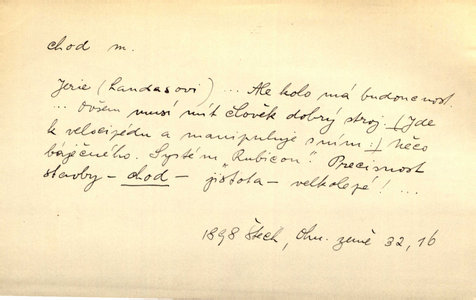 chod m.
Jerie (Landasovi) ... Ale kolo má budoucnost.
... Ovšem musí mít člověk dobrý stroj. /Jde
k velocipédu a manipuluje s ním:/ Něco
báječného. Systém „Rubicon". Precisnost
stavby – chod – jistota – velkolepé! ...
1898 Štech, Ohn. země 32, 16